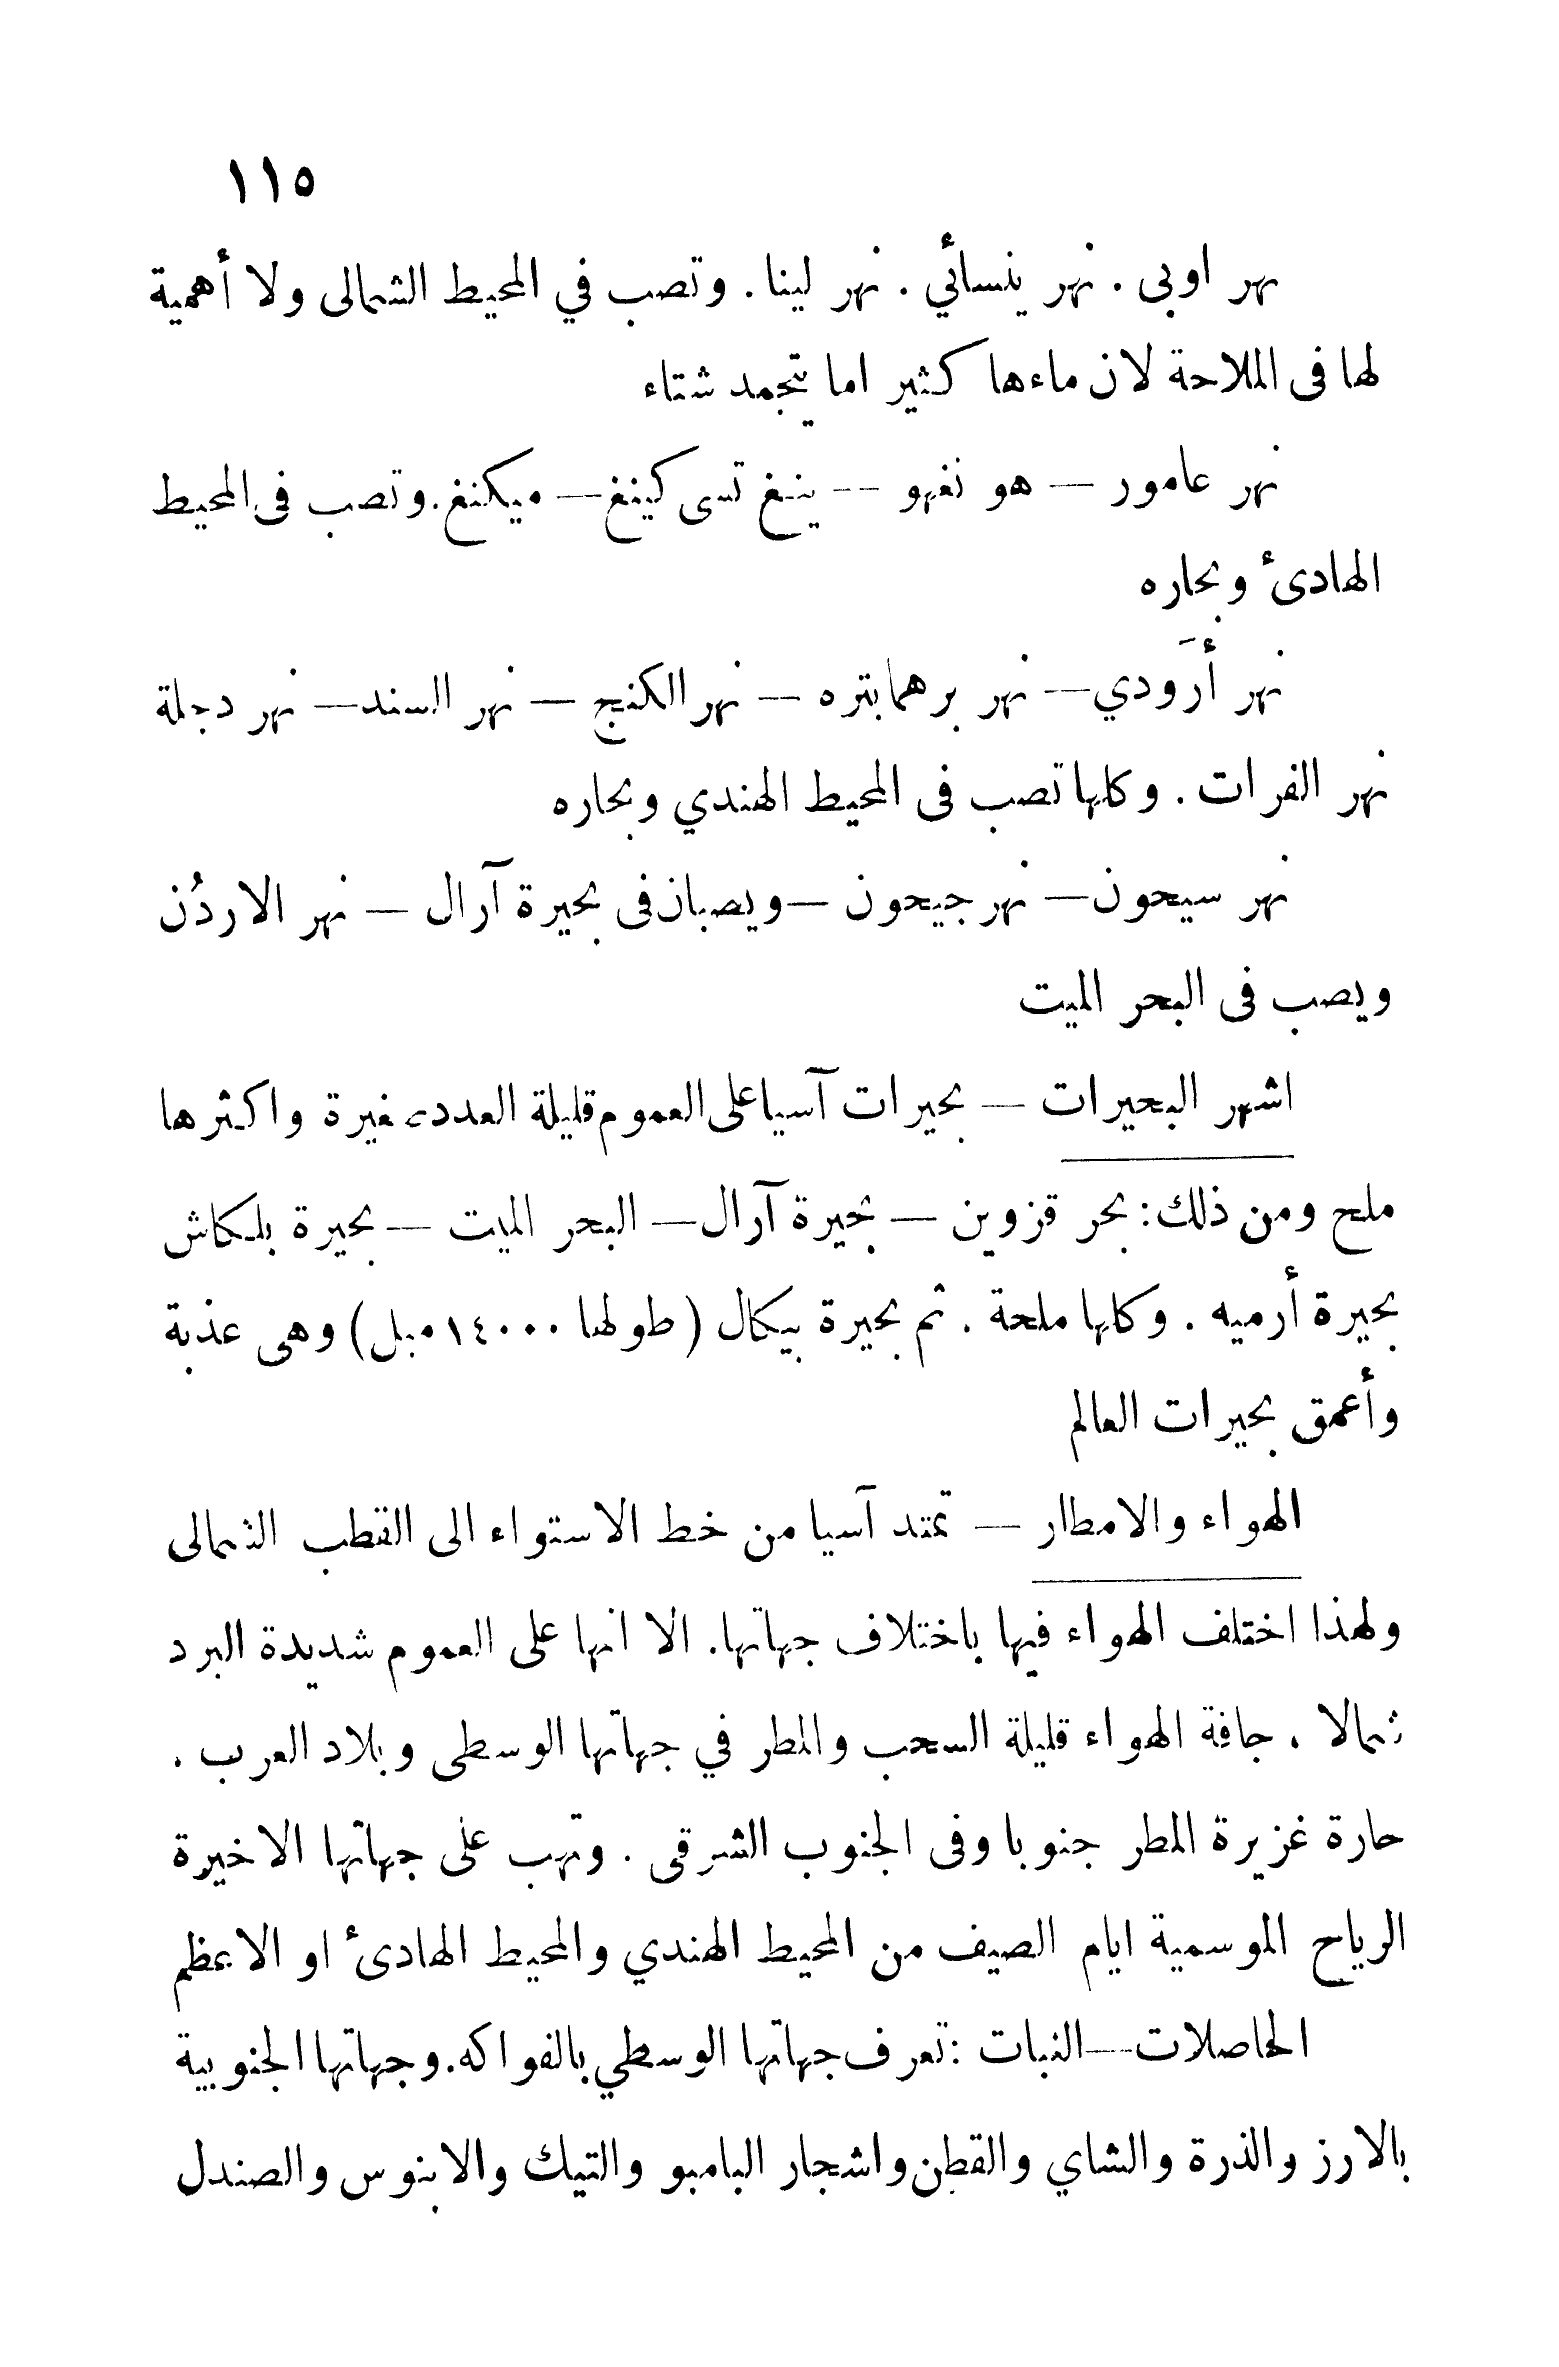 ١١٥
نهر اوبى . نهر ينسأئي . نهر لينا . وتصب في المحيط الشمالى ولا أهمية
لها فى الملاحة لان ماءها كثير اما يتجمد شتاء
نهر عامور — هو نغهو -- ينغ تسى كينغ — ميكنغ . وتصب فى المحيط
الهادئ وبحاره
نهر أرَودي — نهر برهمابتره — نهر الكنج — نهر السند — نهر دجلة
نهر الفرات . وكلها تصب فى المحيط الهندي وبحاره
نهر سيحون — نهر جيحون — ويصبان فى بحيرة آرال — نهر الاردُن
ويصب فى البحر الميت
اشهر البحيرات — بحيرات آسيا على العموم قليلة العدد صغيرة واكثرها
ملح ومن ذلك : بحر قزوين — بحيرة آرال — البحر الميت — بحيرة بلكاش
بحيرة أرميه . وكلها ملحة . ثم بحيرة بيكال ( طولها ١٤٠٠٠ ميل ) وهى عذبة
وأعمق بحيرات العالم
الهواء والامطار — تمتد آسيا من خط الاستواء الى القطب الشمالى
ولهذا اختلف الهواء فيها باختلاف جهاتها . الا انها على العموم شديدة البرد
شمالا ، جافة الهواء قليلة السحب والمطر في جهاتها الوسطى وبلاد العرب .
حارة غزيرة المطر جنوبا وفى الجنوب الشرقى . وتهب على جهاتها الاخيرة
الرياح الموسمية ايام الصيف من المحيط الهندي والمحيط الهادئ او الاعظم
الحاصلات — النبات : تعرف جهاتها الوسطي بالفواكه . وجهاتها الجنوبية
بالارز والذرة والشاي والقطن واشجار البامبو والتيك والابنوس والصندل